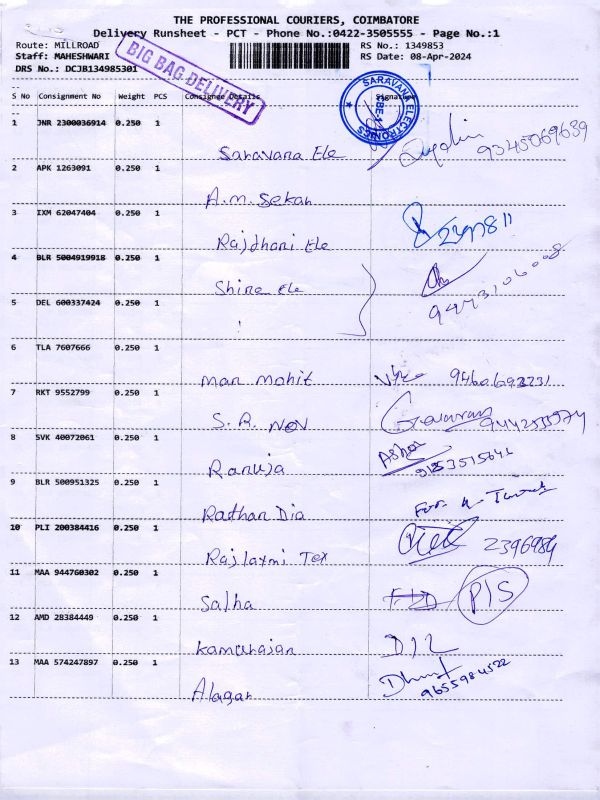 THE PROFESSIONAL COURIERS, COIMBATORE
Delivery Runsheet - PCT - Phone No.:0422-3505555 - Page No.:1
Route: MILLROAD RS No.: 1349853
Staff: MAHESHWARI RS Date: 08-Apr-2024
DRS No.: DCJB134985301
BIG BAG DELIVERY
SARAVANA ELECTRONICS
S No Consignment No Weight PCS Consignee Details Signature
1 JNR 2300036914 0.250 1
Saravana Ele 9345069639
2 APK 1263091 0.250 1
A.m. Sekar
3 IXM 62047404 0.250 1
Rajdhani Ele
4 BLR 5004919918 0.250 1
Shine Ele
5 DEL 600337424 0.250 1
6 TLA 7607666 0.250 1
man mohit
7 RKT 9552799 0.250 1
S. R. Nov
8 SVK 40072061 0.250 1
Ranuja Ashok
9 BLR 500951325 0.250 1
Radhan Dia
10 PLI 200384416 0.250 1
Rajlaxmi Tex 2396984
11 MAA 944760302 0.250 1
Salha P/S
12 AMD 28384449 0.250 1
Kamarajan D/L
13 MAA 574247897 0.250 1
Alagan 9655984522